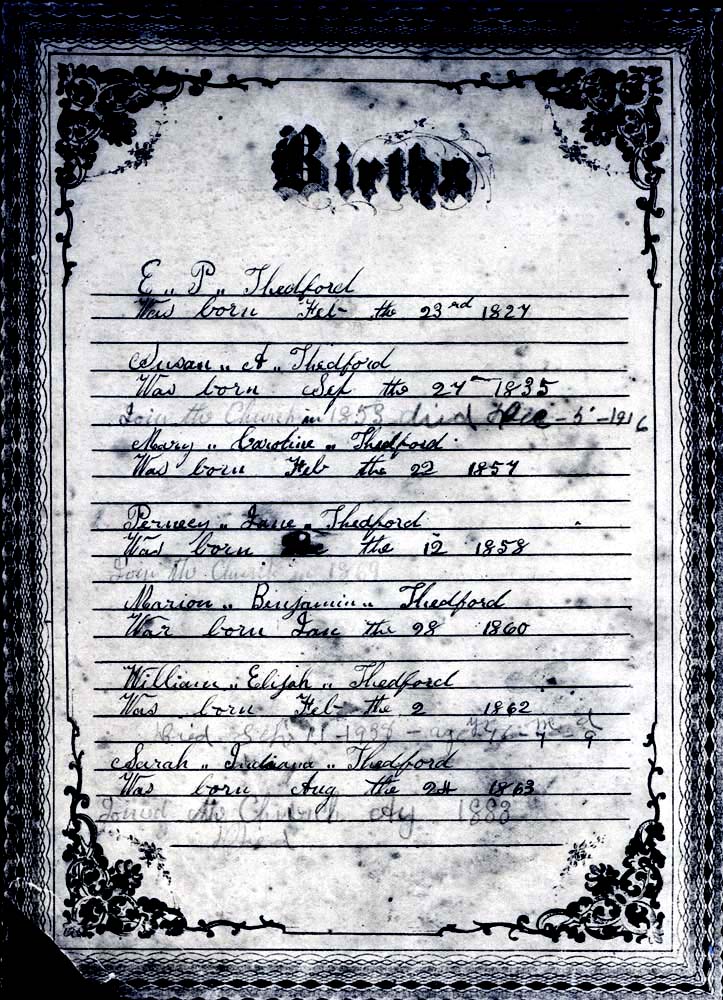 Births
E. P. Thedford
Was born Feb the 23rd 1827
Susan A Thedford
Was born Sep the 27 1835
Join the Church in 1853 died Dec - 5 - 1916
Mary Caroline Thedford
Was born Feb the 22 1857
Jane Thedford
Was born the 12 1858
Join the Church in 1869
Marion Benjamin Thedford
Was born Jan the 28 1860
William Elijah Thedford
Was born Feb the 2 1862
Died Sep. 11 - 1938 - age
Sarah Thedford
Was born Aug the 24 1863
Joined the Church 1883
Died